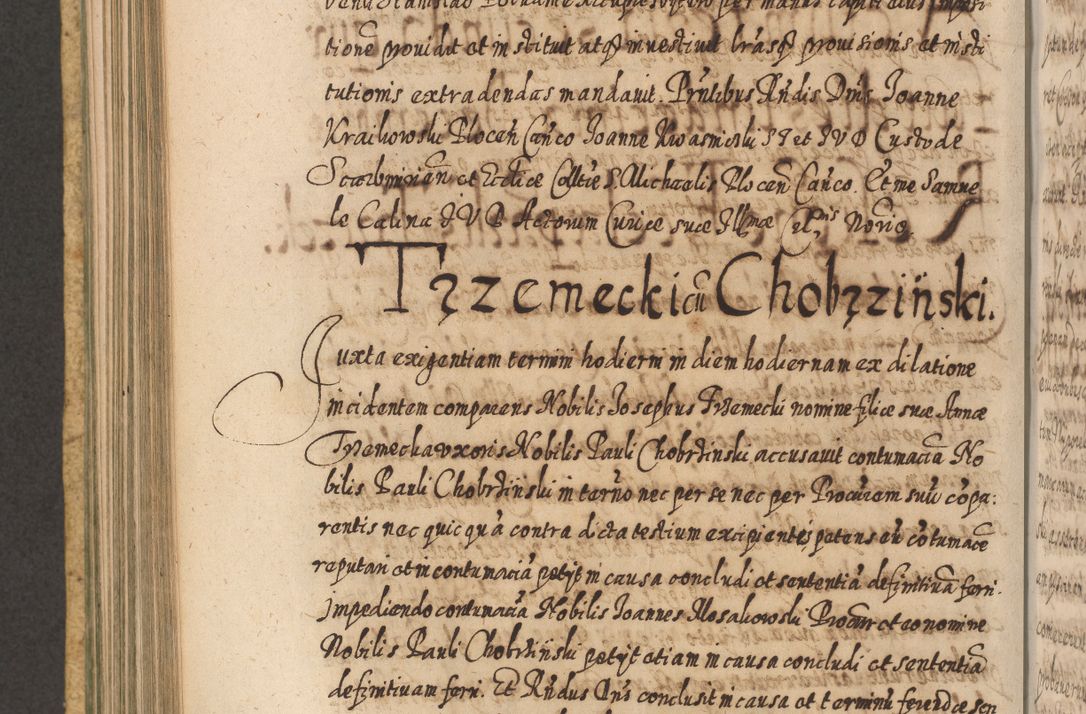 tionē providit et instituit atq̃ investivit lrãsq̃ provisionis et insti
tutionis extradendas mandavit. Prñtibus Rñdis Dnis Joanne
Kraikowski Plocen̄ Cañco Joanne Kwasnicki S T et J V D Custode
Scarbimirien̄ et Ecclicæ Colltiæ S. Michaelis Plocen̄ Cañco. Et me Samue
le Calina J V D Actorum Curiæ suæ Illmæ Celnis Nõrio.
Trzemecki cū Chobrziński.
Juxta exigentiam termini hodierni in diem hodiernam ex dilatione
incidentem comparens Nobilis Josephus Trzemecki nomine filiæ suæ Annæ
Trzemecka uxoris Nobilis Pauli Chobrzinski accusavit contumaciā No
bilis Pauli Chobrziński in terñno nec per se nec per Procūrem suū cōpa:
rentis nec quicquā contra dicta testium excipientis petens eū cōtumacē
reputari et in contumaciā petijt in causa concludi et sententiā definitivā ferri.
Impediendo contumaciā Nobilis Joannes Mosakowski Procūr et eo nomine
Nobilis Pauli Chobrzinski petijt etiam in causa concludi et sententiā
definitivam ferri. Et Rñdus Dñs conclusit in causa et terminū ferendæ sen